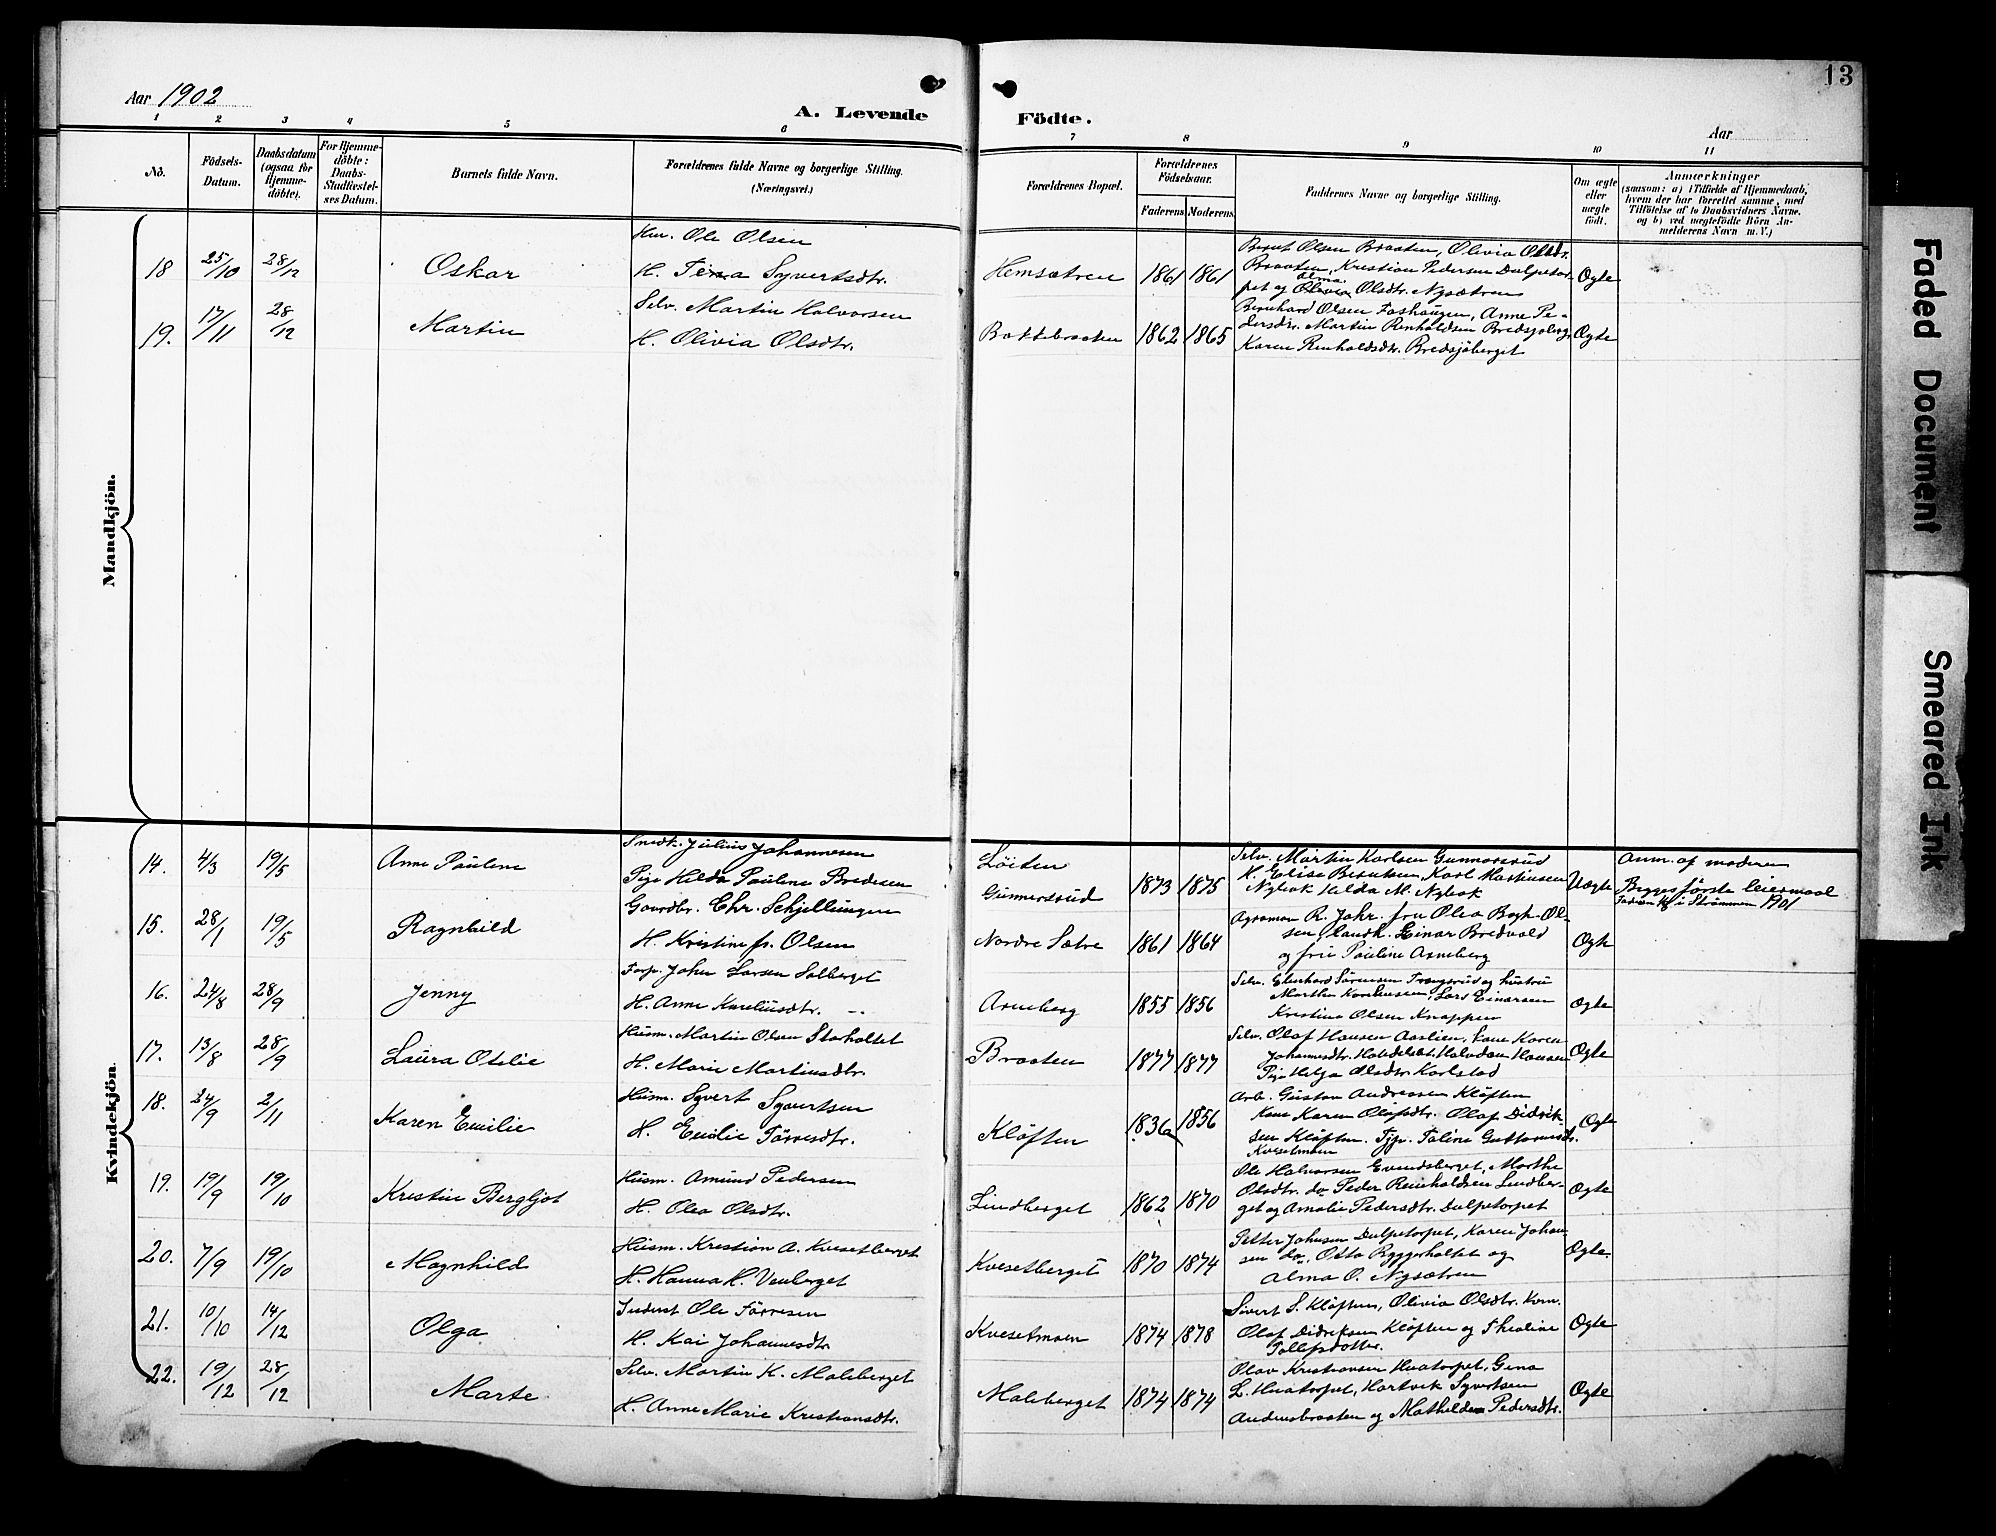 13
Aar 1902
A. Levende
Födte.
Aar
1 2 3 4 5 6 7 8 9 10 11
No.
Födsels-Datum.
Daabsdatum (ogsaa for Hjemme-döbte).
For Hjemme-döbte: Daabs-Stadfæstel-ses Datum.
Barnets fulde Navn.
Forældrenes fulde Navne og borgerlige Stilling. (Næringsvei.)
Forældrenes Bopæl.
Forældrenes Födselsaar.
Faderens Moderens
Faddernes Navne og borgerlige Stilling.
Om ægte eller uægte födt.
Anmærkninger
(saasom: a) i Tilfælde af Hjemmedaab,
hvem der har forrettet samme, med
Tilföielse af to Daabsvidners Navne.
og b) ved uægtefödte Börn An-
melderens Navn m. V.)
Mandkjön.
18 25/10 28/12 Oskar
Hm. Ole Olsen
H. Tina Syvertsdtr.
Hemsætren 1861 1861
Bernt Olsen Braaten, Olivia Olsdr.
Braaten, Kristian Pedersen Dulpetor-
pet og Olivia Alma Olsdtr. Nysætren
Ægte
19. 17/11 28/12 Martin
Selv. Martin Halvorsen
H. Olivia Olsdtr.
Bakkebraaten 1862 1865
Bernhard Olsen Foshaugen, Anne Pe-
dersdtr. Martin Renholdsen Bredsjøberg,
Karen Renholdsdtr. Bredsjøberget
Ægte
Kvindekjön.
14. 4/3 19/5 Anne Pauline
Snedk. Julius Johannesen
Pige Hilda Pauline Bredesen
Løiten
Gunnersrud 1873 1875
Selv. Martin Karlsen Gunnarsrud
H. Elise Berntsen, Karl Martinsen
Nybak Hilda M. Nybak
Uægte
Anm. af moderen
Begges første leiermaal
i Strømmen 1901
15. 28/1 19/5 Ragnhild
Gaardbr. Chr. Schjellungen
H. Kristine f. Olsen
Nordre Sætre 1861 1864
Agronom R. Johr. fru Olea Bagh-Ol-
sen, Landh. Einar Bredvold
og frue Pauline Arneberg
Ægte
16. 24/8 28/9 Jenny
Forp. Johan Larsen Solberget
H. Anne Kareliusdtr. --
Arneberg 1855 1856
Selv. Eberhard Sørensen Frangsrud og hustru
Marthe Kornhusen, Lars Einarsen
Kristine Olsen Knappen
Ægte
17. 13/8 28/9 Laura Otilie
Husm. Martin Olsen Storholtet
H. Marie Martinsdtr.
Braaten 1877 1877
Selv. Olaf Hansen Aaslien, Kone Karen
Johannesdtr. Holdelset. Halvdan Hansen
Pige Helga Olsdtr Karlstad
Ægte
18. 24/9 2/11 Karen Emilie
Husm. Syvert Syvertsen
H. Emilie Tørresdtr.
Kløften 1836 1856
Arb. Gustav Andreassen Kløften
Kone Karen Olafsdtr. Olaf Didrik-
sen Kløften. Tjp. Taline Guttormsdtr.
Kvesetmoen
Ægte
19. 19/9 19/10 Kristine Bergljot
Husm. Amund Pedersen
H. Olea Olsdtr.
Lindberget 1862 1870
Ole Halvorsen Evendsberget, Marthe
Olsdtr. do Peder Reinholdsen Lindber-
get og Amalie Pedersdtr. Dulpetorpet
Ægte
20. 7/9 19/10 Magnhild
Husm. Kristian A. Kvesetberget
H. Hanna H. Venberget
Kvesetberget 1870 1874
Petter Johnsen Dulpetorpet, Karen Johan-
sen do, Otto Ryggerholtet og
Alma O. Nysætren
Ægte.
21. 10/10 14/12 Olga
Inderst Ole Tørresen
H. Kai Johannesdtr
Kvesetmoen 1874 1878
Sivert S. Kløften, Olivia Olsdtr. Kvm.
Olaf Didriksen Kløften og Thealine
Tollefsdotter.
Ægte
22. 19/12 28/12 Marte
Selv. Martin K. Maleberget
H. Anne Marie Kristiansdtr.
Maleberget 1874 1874
Olav Kristiansen Huatorpet, Gina
L. Huatorpet, Hartvik Syvertsen
Andersbraaten og Mathilde Pedersdtr.
Ægte
Faded Document
Smeared Ink